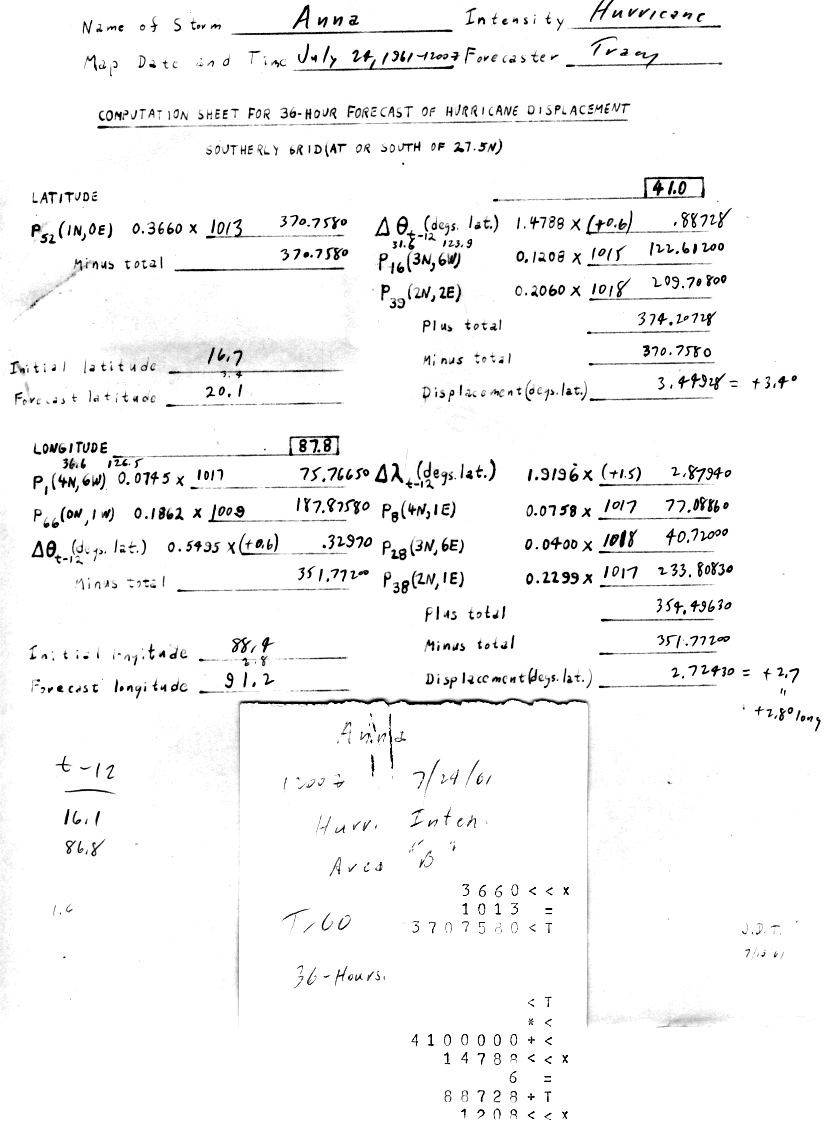 Name of Storm Anna Intensity Hurricane
Map Date and Time July 24, 1961-1200Z Forecaster Tracy
COMPUTATION SHEET FOR 36-HOUR FORECAST OF HURRICANE DISPLACEMENT
SOUTHERLY GRID(AT OR SOUTH OF 27.5N)
LATITUDE
41.0
P52(1N,0E) 0.3660 x 1013 370.7580
Minus total 370.7580
Δθt-12 (degs. lat.) 1.4788 x (+0.6) .88728
31.6 123.9
P16(3N,6W) 0.1208 x 1015 122.61200
P39(2N,2E) 0.2060 x 1018 209.70800
Plus total 374.20728
Minus total 370.7580
Displacement(degs.lat.) 3.44928 = +3.4°
Initial latitude 16.7
3.4
Forecast latitude 20.1
LONGITUDE 87.8
36.6 126.5
P1(4N,6W) 0.0745 x 1017 75.76650
P66(0N,1W) 0.1862 x 1009 187.87580
Δθt-12 (degs. lat.) 0.5495 x (+0.6) .32970
Minus total 351.77200
Δλt-12 (degs. lat.) 1.9196 x (+1.5) 2.87940
P8(4N,1E) 0.0758 x 1017 77.08860
P28(3N,6E) 0.0400 x 1018 40.72000
P38(2N,1E) 0.2299 x 1017 233.80830
Plus total 354.49630
Minus total 351.77200
Displacement(degs.lat.) 2.72430 = +2.7
"
+2.8° long
Initial longitude 88.4
2.8
Forecast longitude 91.2
t-12
16.1
86.8
1.6
Anna
1200Z 7/24/61
Hurr. Inten.
Area "B"
T/60
36-Hours.
3660<<x
1013 =
3707580<T
<T
*<
4100000+<
14788<<x
6 =
88728+T
1208<<x
J.D.T.